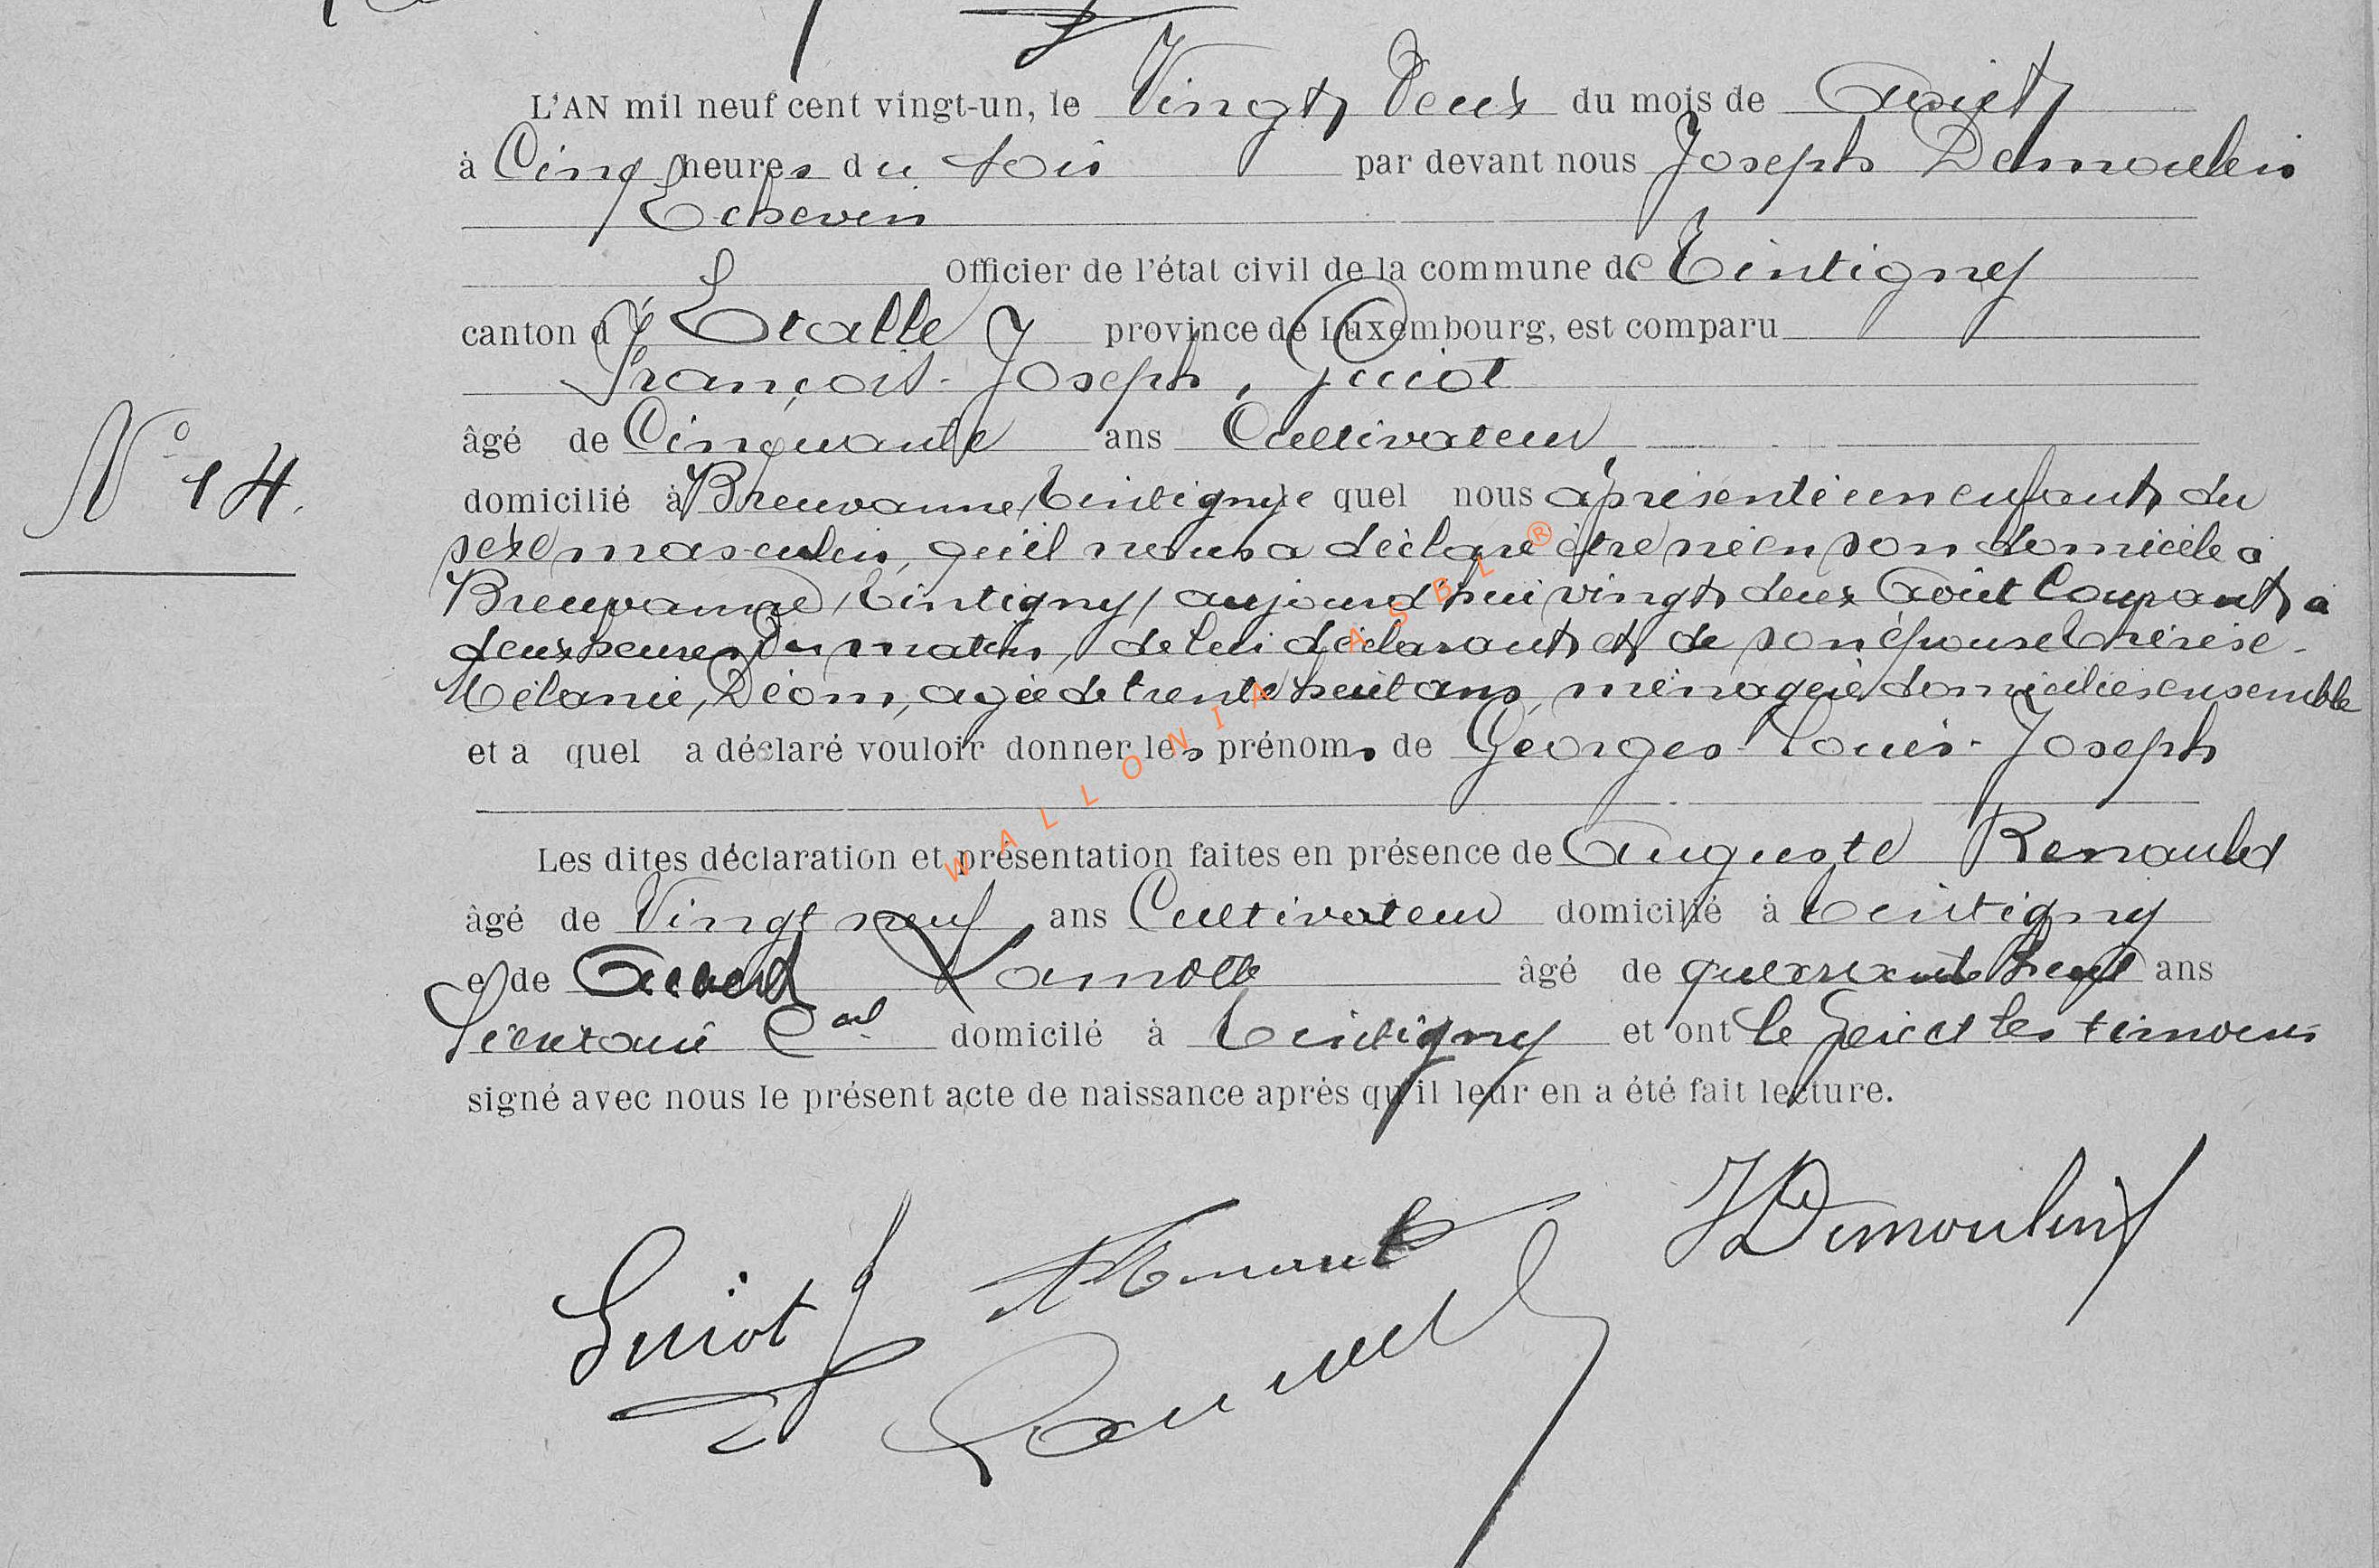 L'AN mil neuf cent vingt-un, le Vingt Deux du mois de Août
à Cinq heures du soir par devant nous Joseph Demoulin
Echevin
Officier de l'état civil de la commune de Tintigny
canton d'Etalle province de Luxembourg, est comparu
François-Joseph, Guiot
N° 14.
âgé de Cinquante ans Cultivateur
domicilié à Breuvanne/Tintigny/ le quel nous a présenté un enfant du
sexe masculin, qu'il nous a déclaré être né en son domicile à
Breuvanne/Tintigny/ aujourd'hui vingt deux Août Courant, à
deux heures du matin, de lui déclarant et de son épouse Thérèse-
Mélanie, Déom, agée de trente huit ans, ménagère domiciliés ensemble
et a quel a déclaré vouloir donner les prénoms de Georges-Louis-Joseph
Les dites déclaration et présentation faites en présence de Auguste Renauld
âgé de Vingt neuf ans Cultivateur domicilié à Tintigny
e de Lamotte âgé de ans
domicilé à Tintigny et ont le Père et les témoins
signé avec nous le présent acte de naissance après qu'il leur en a été fait lecture.
JDemoulin
Guiot
WALLONIA ASBL ®